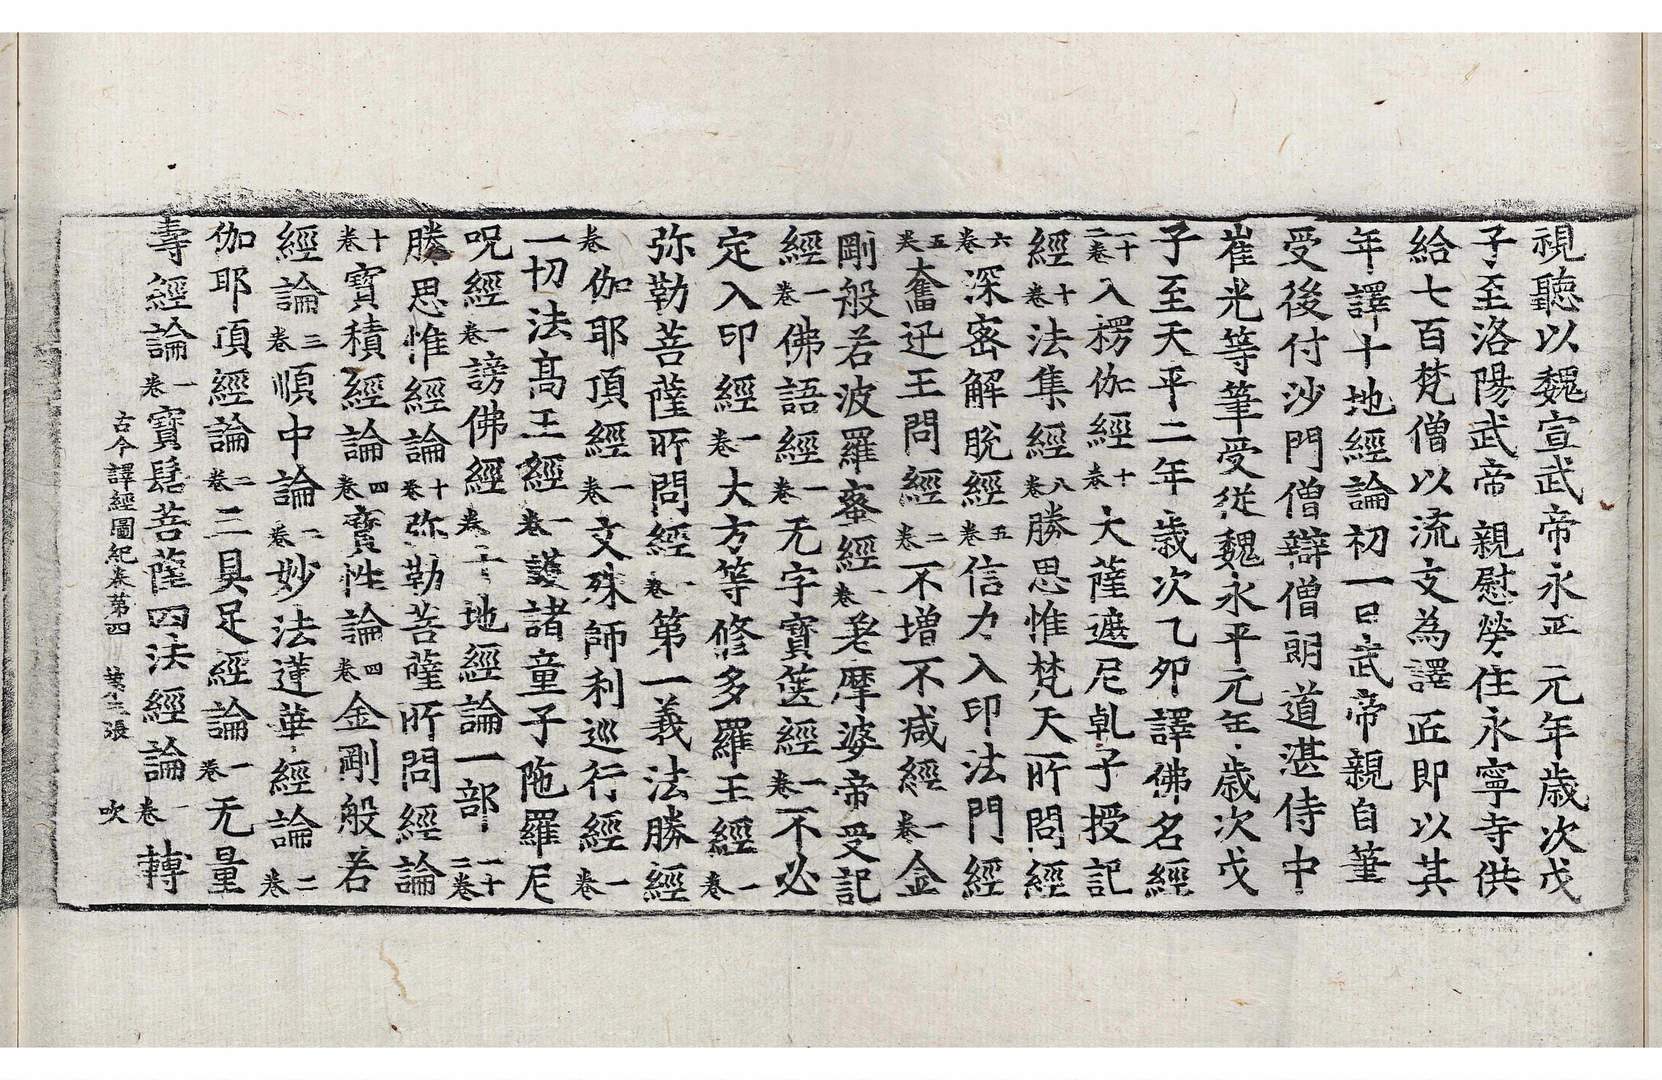 視聽以魏宣武帝永平元年歲次戊
子至洛陽武帝親慰勞住永寧寺供
給七百梵僧以流支為譯匠即以其
年譯十地經論初一日武帝親自筆
受後付沙門僧辯僧朗道湛侍中
崔光等筆受從魏永平元年歲次戊
子至天平二年歲次乙卯譯佛名經
一十二卷入楞伽經十卷大薩遮尼乹子授記
經十卷法集經八卷勝思惟梵天所問經
六卷深密解脫經五卷信力入印法門經
五卷奮迅王問經二卷不增不减經一卷金
剛般若波羅蜜經一卷差摩婆帝受記
經一卷佛語經一卷无字寶篋經一卷不必
定入印經一卷大方等修多羅王經一卷
弥勒菩薩所問經一卷第一義法勝經
一卷伽耶頂經一卷文殊師利巡行經一卷
一切法高王經一卷護諸童子陁羅尼
呪經一卷謗佛經一卷十地經論一部一十二卷
勝思惟經論十卷弥勒菩薩所問經論
十卷寶積經論四卷寶性論四卷金剛般若
經論三卷順中論二卷妙法蓮華經論二卷
伽耶頂經論二卷三具足經論一卷无量
壽經論一卷寶髻菩薩四法經論一卷轉
古今譯經圖紀卷第四 張 吹